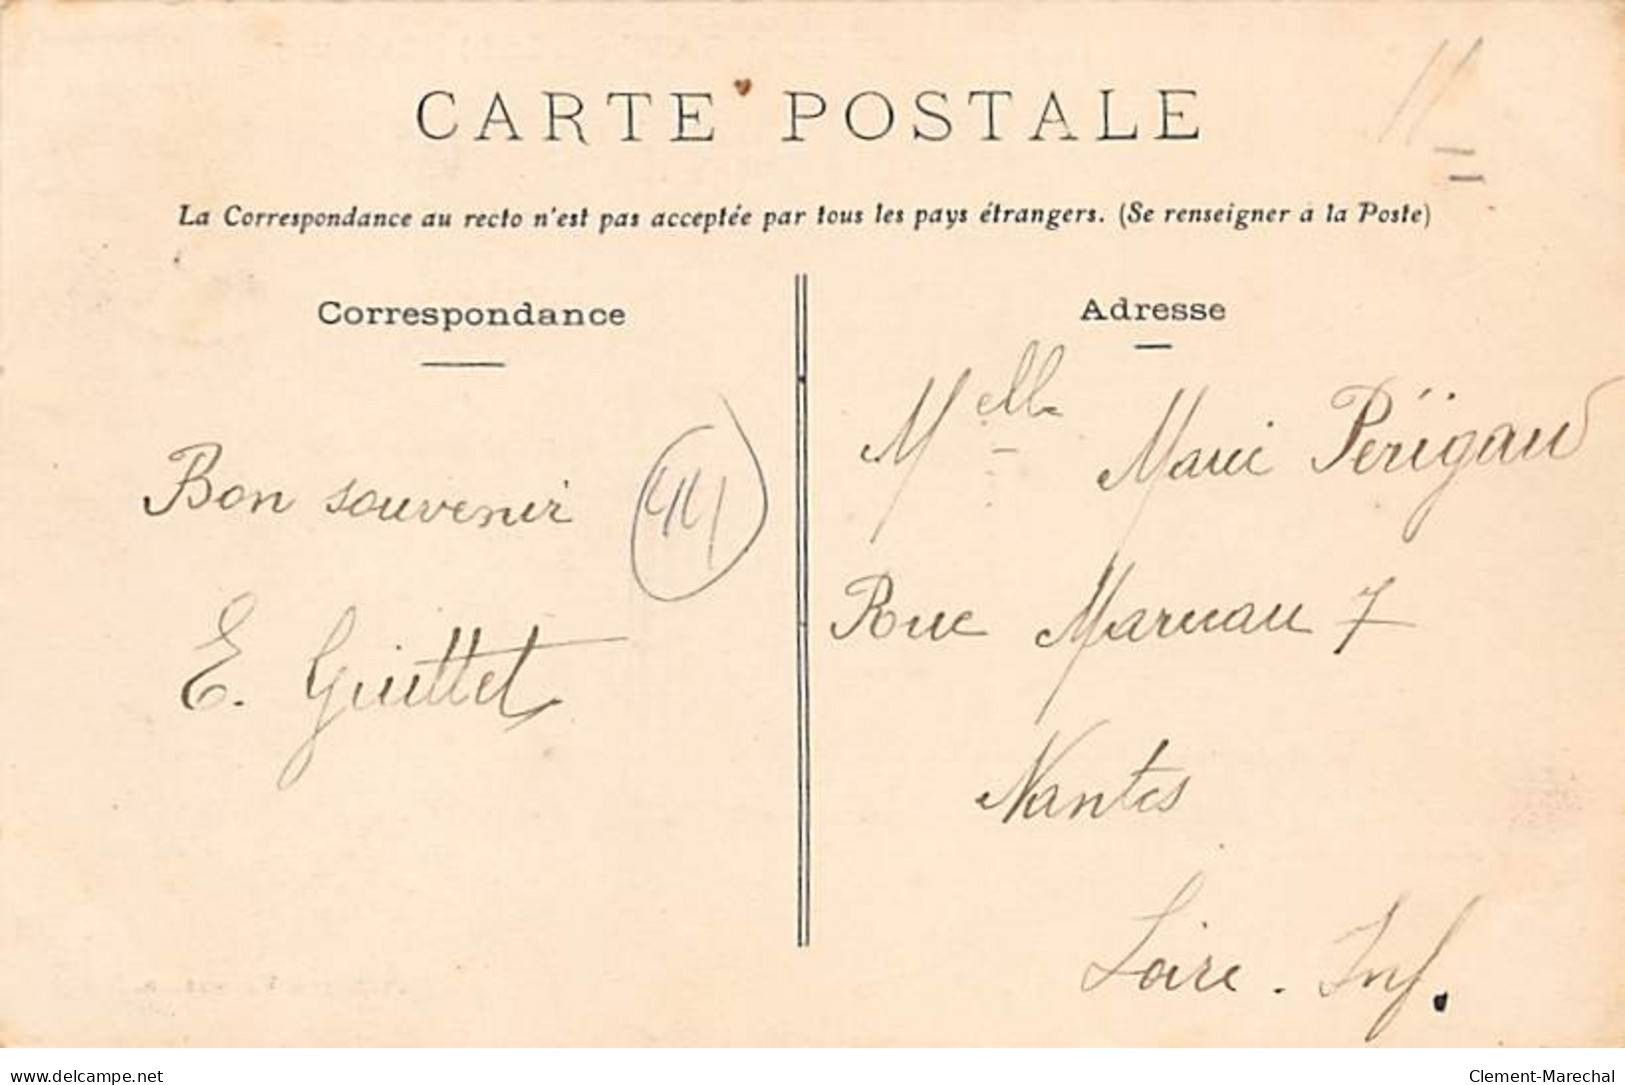 CARTE POSTALE
11
La Correspondance au recto n'est pas acceptée par tous les pays étrangers. (Se renseigner à la Poste)
Correspondance
Adresse
Bon souvenir
44
E. Guittet
Melle Marie Périgaud
Rue Marceau 7
Nantes
Loire. Inf.
delcampe.net
Clement-Marechal